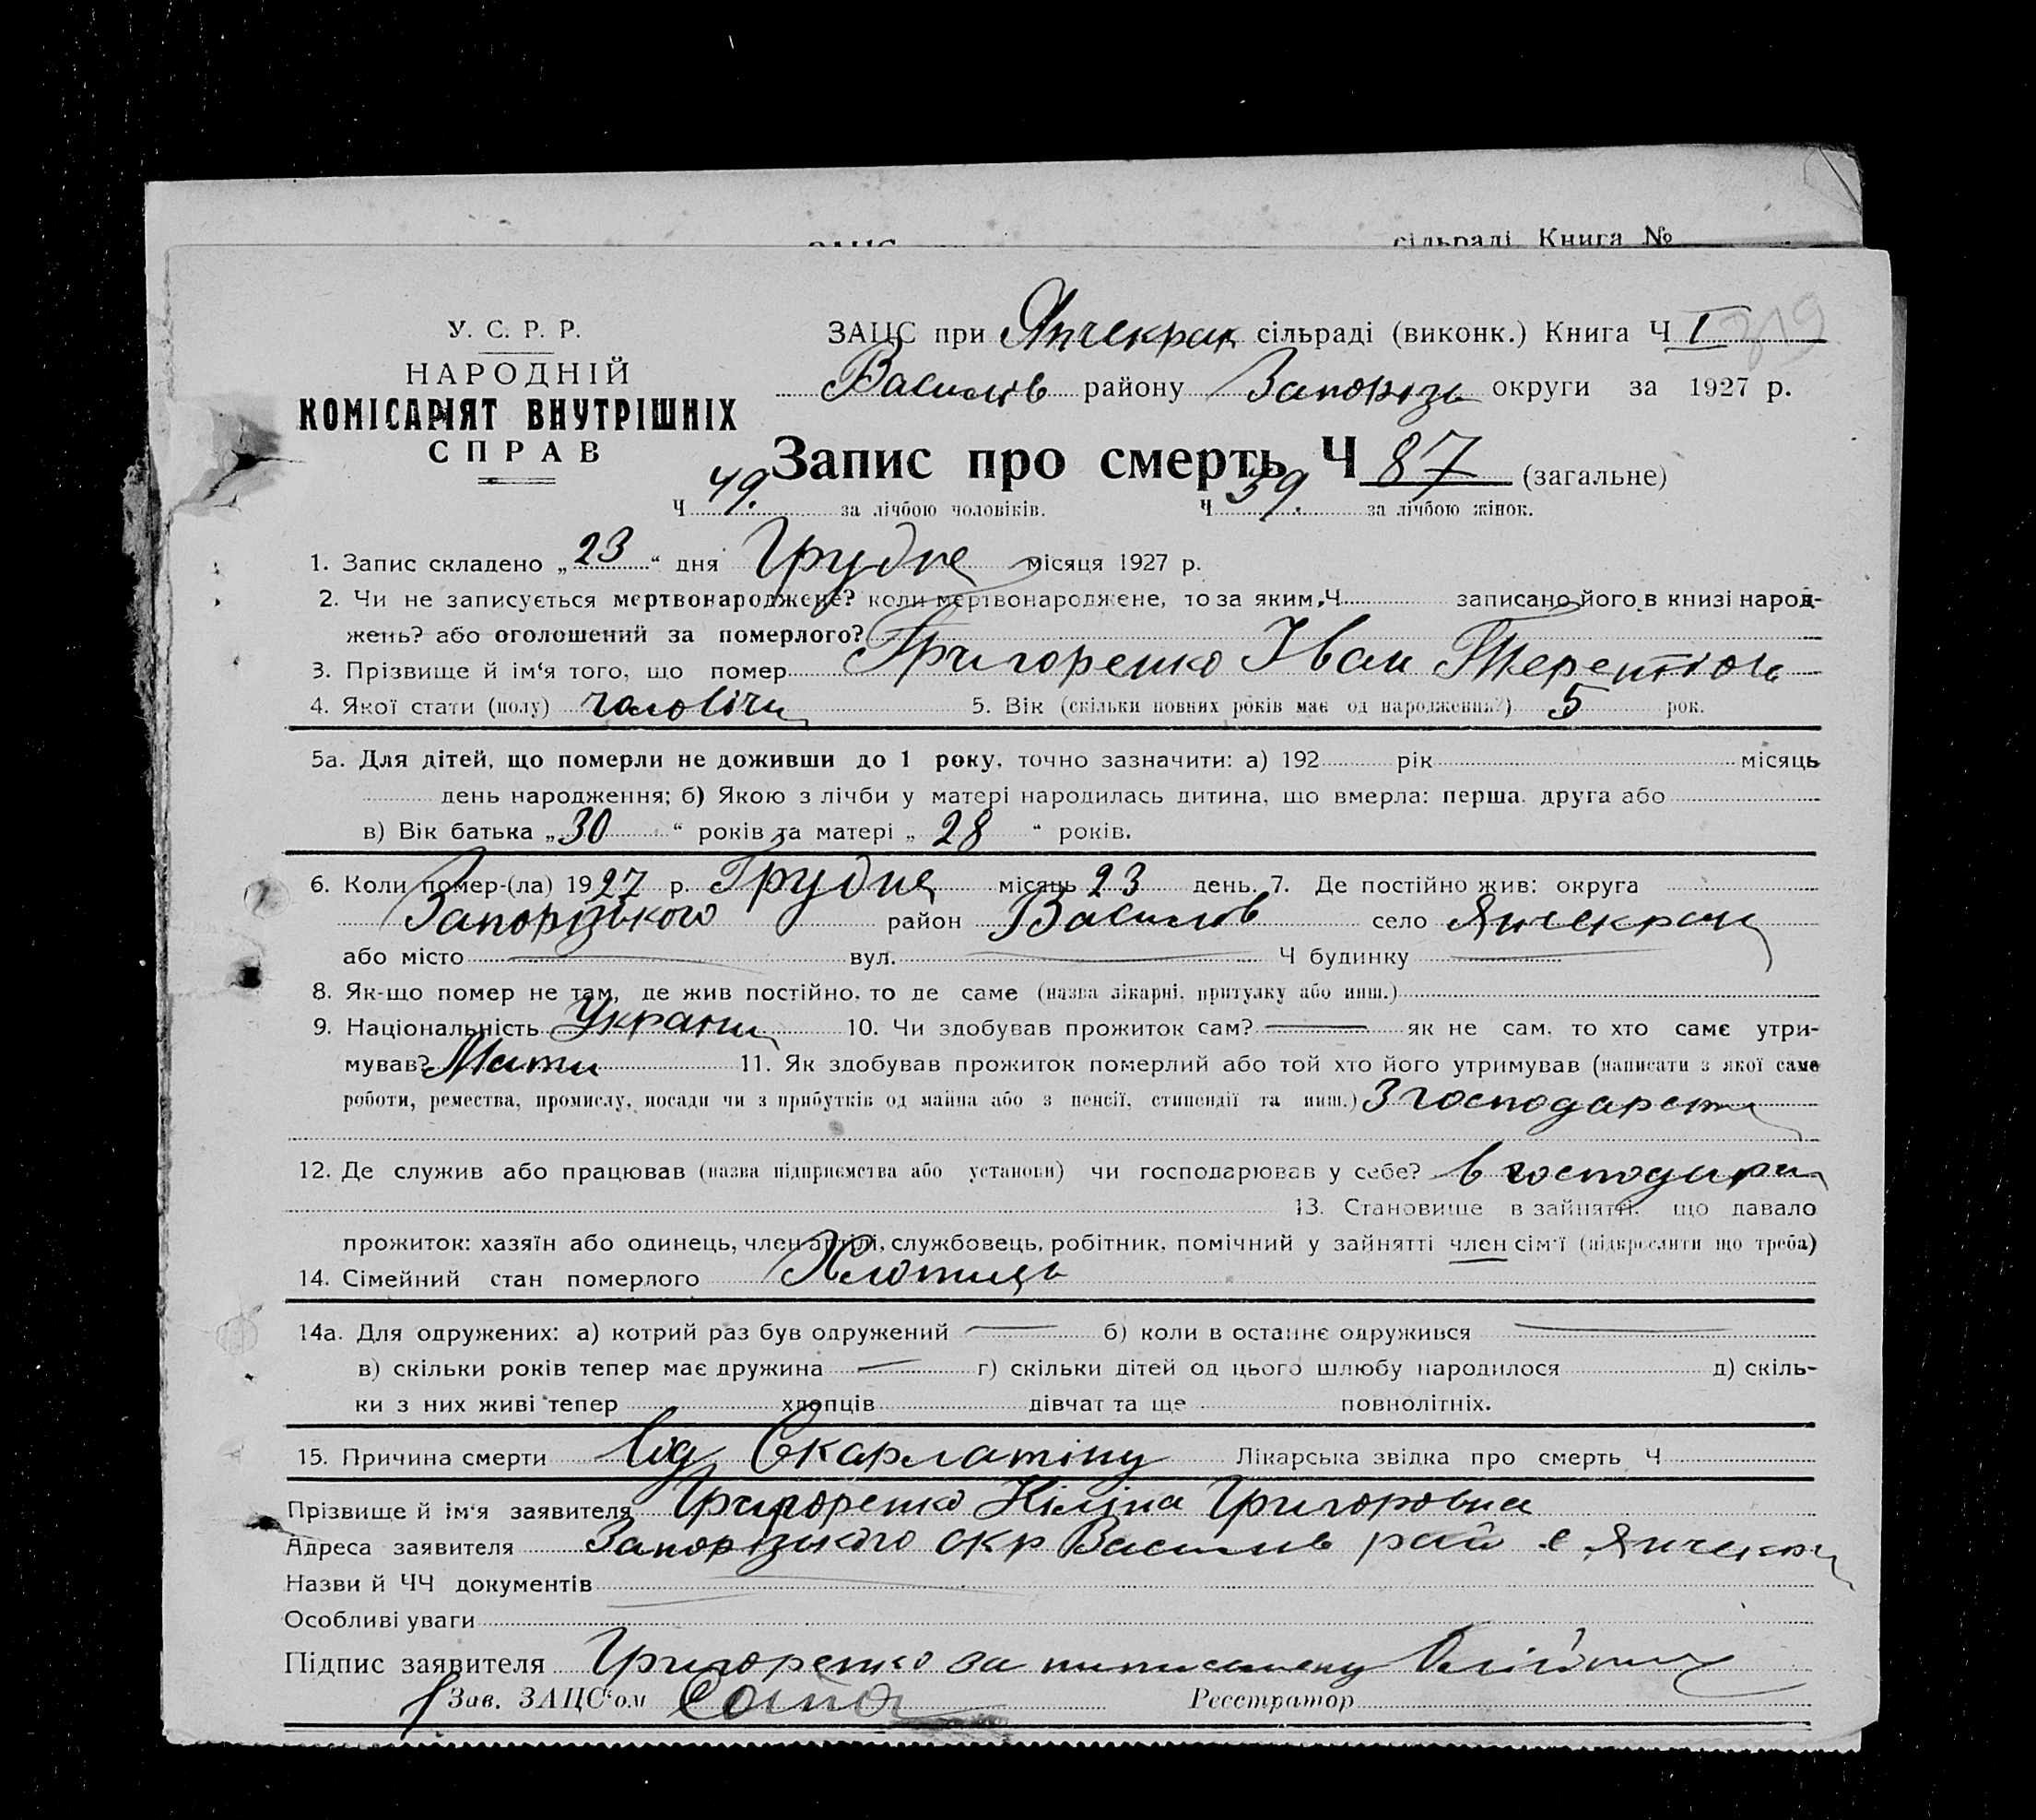 ЗАЦС сільраді Книга №
У. С. Р. Р.
НАРОДНІЙ
КОМІСАРІЯТ ВНУТРІШНІХ
СПРАВ
ЗАЦС при Янчекрак сільраді (виконк.) Книга Ч I
Василів району Запорізь округи за 1927 р.
Запис про смерть Ч 87 (загальне)
Ч 49. за лічбою чоловіків. Ч 39. за лічбою жінок.
1. Запис складено „23“ дня Грудня місяця 1927 р.
2. Чи не записується мертвонароджене? коли мертвонароджене, то за яким Ч записано його в книзі народ-
жень? або оголошений за померлого?
3. Прізвище й ім‘я того, що помер Григоренко Іван
4. Якої стати (полу) чоловічи 5. Вік (скільки повних років має од народження?) 5 рок.
5а. Для дітей, що померли не доживши до 1 року, точно зазначити: а) 192 рік місяць
день народження; б) Якою з лічби у матері народилась дитина, що вмерла: перша, друга або
в) Вік батька „30“ років та матері „28“ років.
6. Коли помер-(ла) 1927 р. Грудня місяць 23 день. 7. Де постійно жив: округа
Запорізького район Василів село Янчекрак
або місто вул. Ч будинку
8. Як-що помер не там, де жив постійно, то де саме (назва лікарні, притулку або инш.)
9. Національність Україн 10. Чи здобував прожиток сам? — як не сам, то хто саме утри-
мував? Мати 11. Як здобував прожиток померлий або той хто його утримував (написати з якої саме
роботи, ремества, промислу, посади чи з прибутків од майна або з пенсії, стипендії та инш.) З господарств
12. Де служив або працював (назва підприємства або установи) чи господарював у себе? в господари
13. Становище в зайнятті, що давало
прожиток: хазяїн або одинець, член артілі, службовець, робітник, помічний у зайнятті член сім‘ї (підкреслити що треба)
14. Сімейний стан померлого Хлопиць
14а. Для одружених: а) котрий раз був одружений — б) коли в останнє одружився —
в) скільки років тепер має дружина — г) скільки дітей од цього шлюбу народилося д) скіль-
ки з них живі тепер хлопців дівчат та ще повнолітніх.
15. Причина смерти Від Скарлатіну Лікарська звідка про смерть Ч
Прізвище й ім‘я заявителя Григоренко Кіліна Григоровна
Адреса заявителя Запорізького окр Василів рай с Янчекрак
Назви й ЧЧ документів
Особливі уваги
Підпис заявителя Григоренко за
Зав. ЗАЦС‘ом Реєстратор